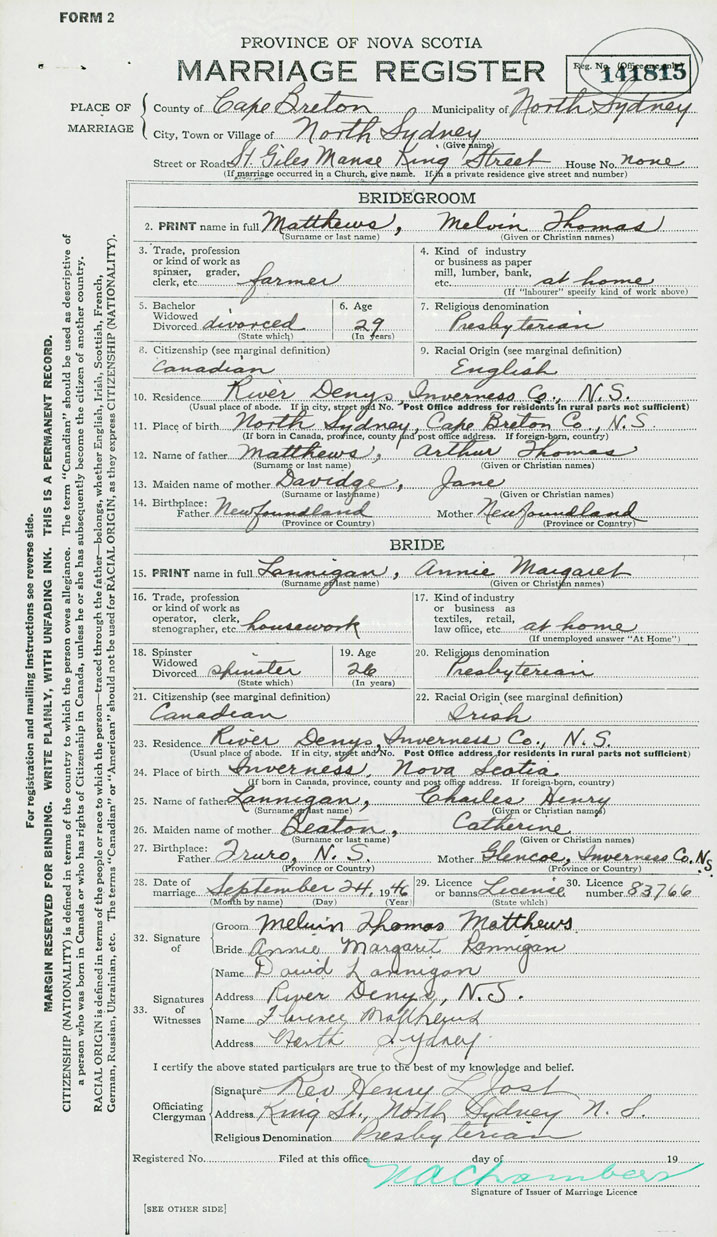 FORM 2
PROVINCE OF NOVA SCOTIA
MARRIAGE REGISTER
Reg. No. (Office use only)
141815
PLACE OF MARRIAGE
County of Cape Breton Municipality of North Sydney
City, Town or Village of North Sydney
(Give name)
Street or Road St. Giles Manse King Street House No. none
(If marriage occurred in a Church, give name. If in a private residence give street and number)
BRIDEGROOM
2. PRINT name in full Matthews, Melvin Thomas
(Surname or last name) (Given or Christian names)
3. Trade, profession or kind of work as spinner, grader, clerk, etc. farmer
4. Kind of industry or business as paper mill, lumber, bank, etc. at home
(If "labourer" specify kind of work above)
5. Bachelor Widowed Divorced divorced
(State which)
6. Age 29
(In years)
7. Religious denomination
Presbyterian
8. Citizenship (see marginal definition)
Canadian
9. Racial Origin (see marginal definition)
English
10. Residence River Denys, Inverness Co., N.S.
(Usual place of abode. If in city, street and No. Post Office address for residents in rural parts not sufficient)
11. Place of birth North Sydney, Cape Breton Co., N.S.
(If born in Canada, province, county and post office address. If foreign-born, country)
12. Name of father Matthews, Arthur Thomas
(Surname or last name) (Given or Christian names)
13. Maiden name of mother Davidge, Jane
(Surname or last name) (Given or Christian names)
14. Birthplace: Father Newfoundland Mother Newfoundland
(Province or Country) (Province or Country)
BRIDE
15. PRINT name in full Lannigan, Annie Margaret
(Surname or last name) (Given or Christian names)
16. Trade, profession or kind of work as operator, clerk, stenographer, etc. housework
17. Kind of industry or business as textiles, retail, law office, etc. at home
(If unemployed answer "At Home")
18. Spinster Widowed Divorced spinster
(State which)
19. Age 26
(In years)
20. Religious denomination
Presbyterian
21. Citizenship (see marginal definition)
Canadian
22. Racial Origin (see marginal definition)
Irish
23. Residence River Denys, Inverness Co., N.S.
(Usual place of abode. If in city, street and No. Post Office address for residents in rural parts not sufficient)
24. Place of birth Inverness, Nova Scotia
(If born in Canada, province, county and post office address. If foreign-born, country)
25. Name of father Lannigan, Charles Henry
(Surname or last name) (Given or Christian names)
26. Maiden name of mother Beaton, Catherine
(Surname or last name) (Given or Christian names)
27. Birthplace: Father Truro, N.S. Mother Glencoe, Inverness Co. N.S.
(Province or Country) (Province or Country)
28. Date of marriage September 24, 1946
(Month by name) (Day) (Year)
29. Licence or banns License
(State which)
30. Licence number 83766
32. Signature of
Groom Melvin Thomas Matthews
Bride Annie Margaret Lannigan
33. Signatures of Witnesses
Name David Lannigan
Address River Denys, N.S.
Name Florence Matthews
Address North Sydney
I certify the above stated particulars are true to the best of my knowledge and belief.
Officiating Clergyman
Signature Rev Henry L Jost
Address King St., North Sydney N.S.
Religious Denomination Presbyterian
Registered No. Filed at this office day of 19
N A Chambers
Signature of Issuer of Marriage Licence
[SEE OTHER SIDE]
For registration and mailing instructions see reverse side.
MARGIN RESERVED FOR BINDING. WRITE PLAINLY, WITH UNFADING INK. THIS IS A PERMANENT RECORD.
CITIZENSHIP (NATIONALITY) is defined in terms of the country to which the person owes allegiance. The term "Canadian" should be used as descriptive of
a person who was born in Canada or who has rights of Citizenship in Canada, unless he or she has subsequently become the citizen of another country.
RACIAL ORIGIN is defined in terms of the people or race to which the person—traced through the father—belongs, whether English, Irish, Scottish, French,
German, Russian, Ukrainian, etc. The terms "Canadian" or "American" should not be used for RACIAL ORIGIN, as they express CITIZENSHIP (NATIONALITY).